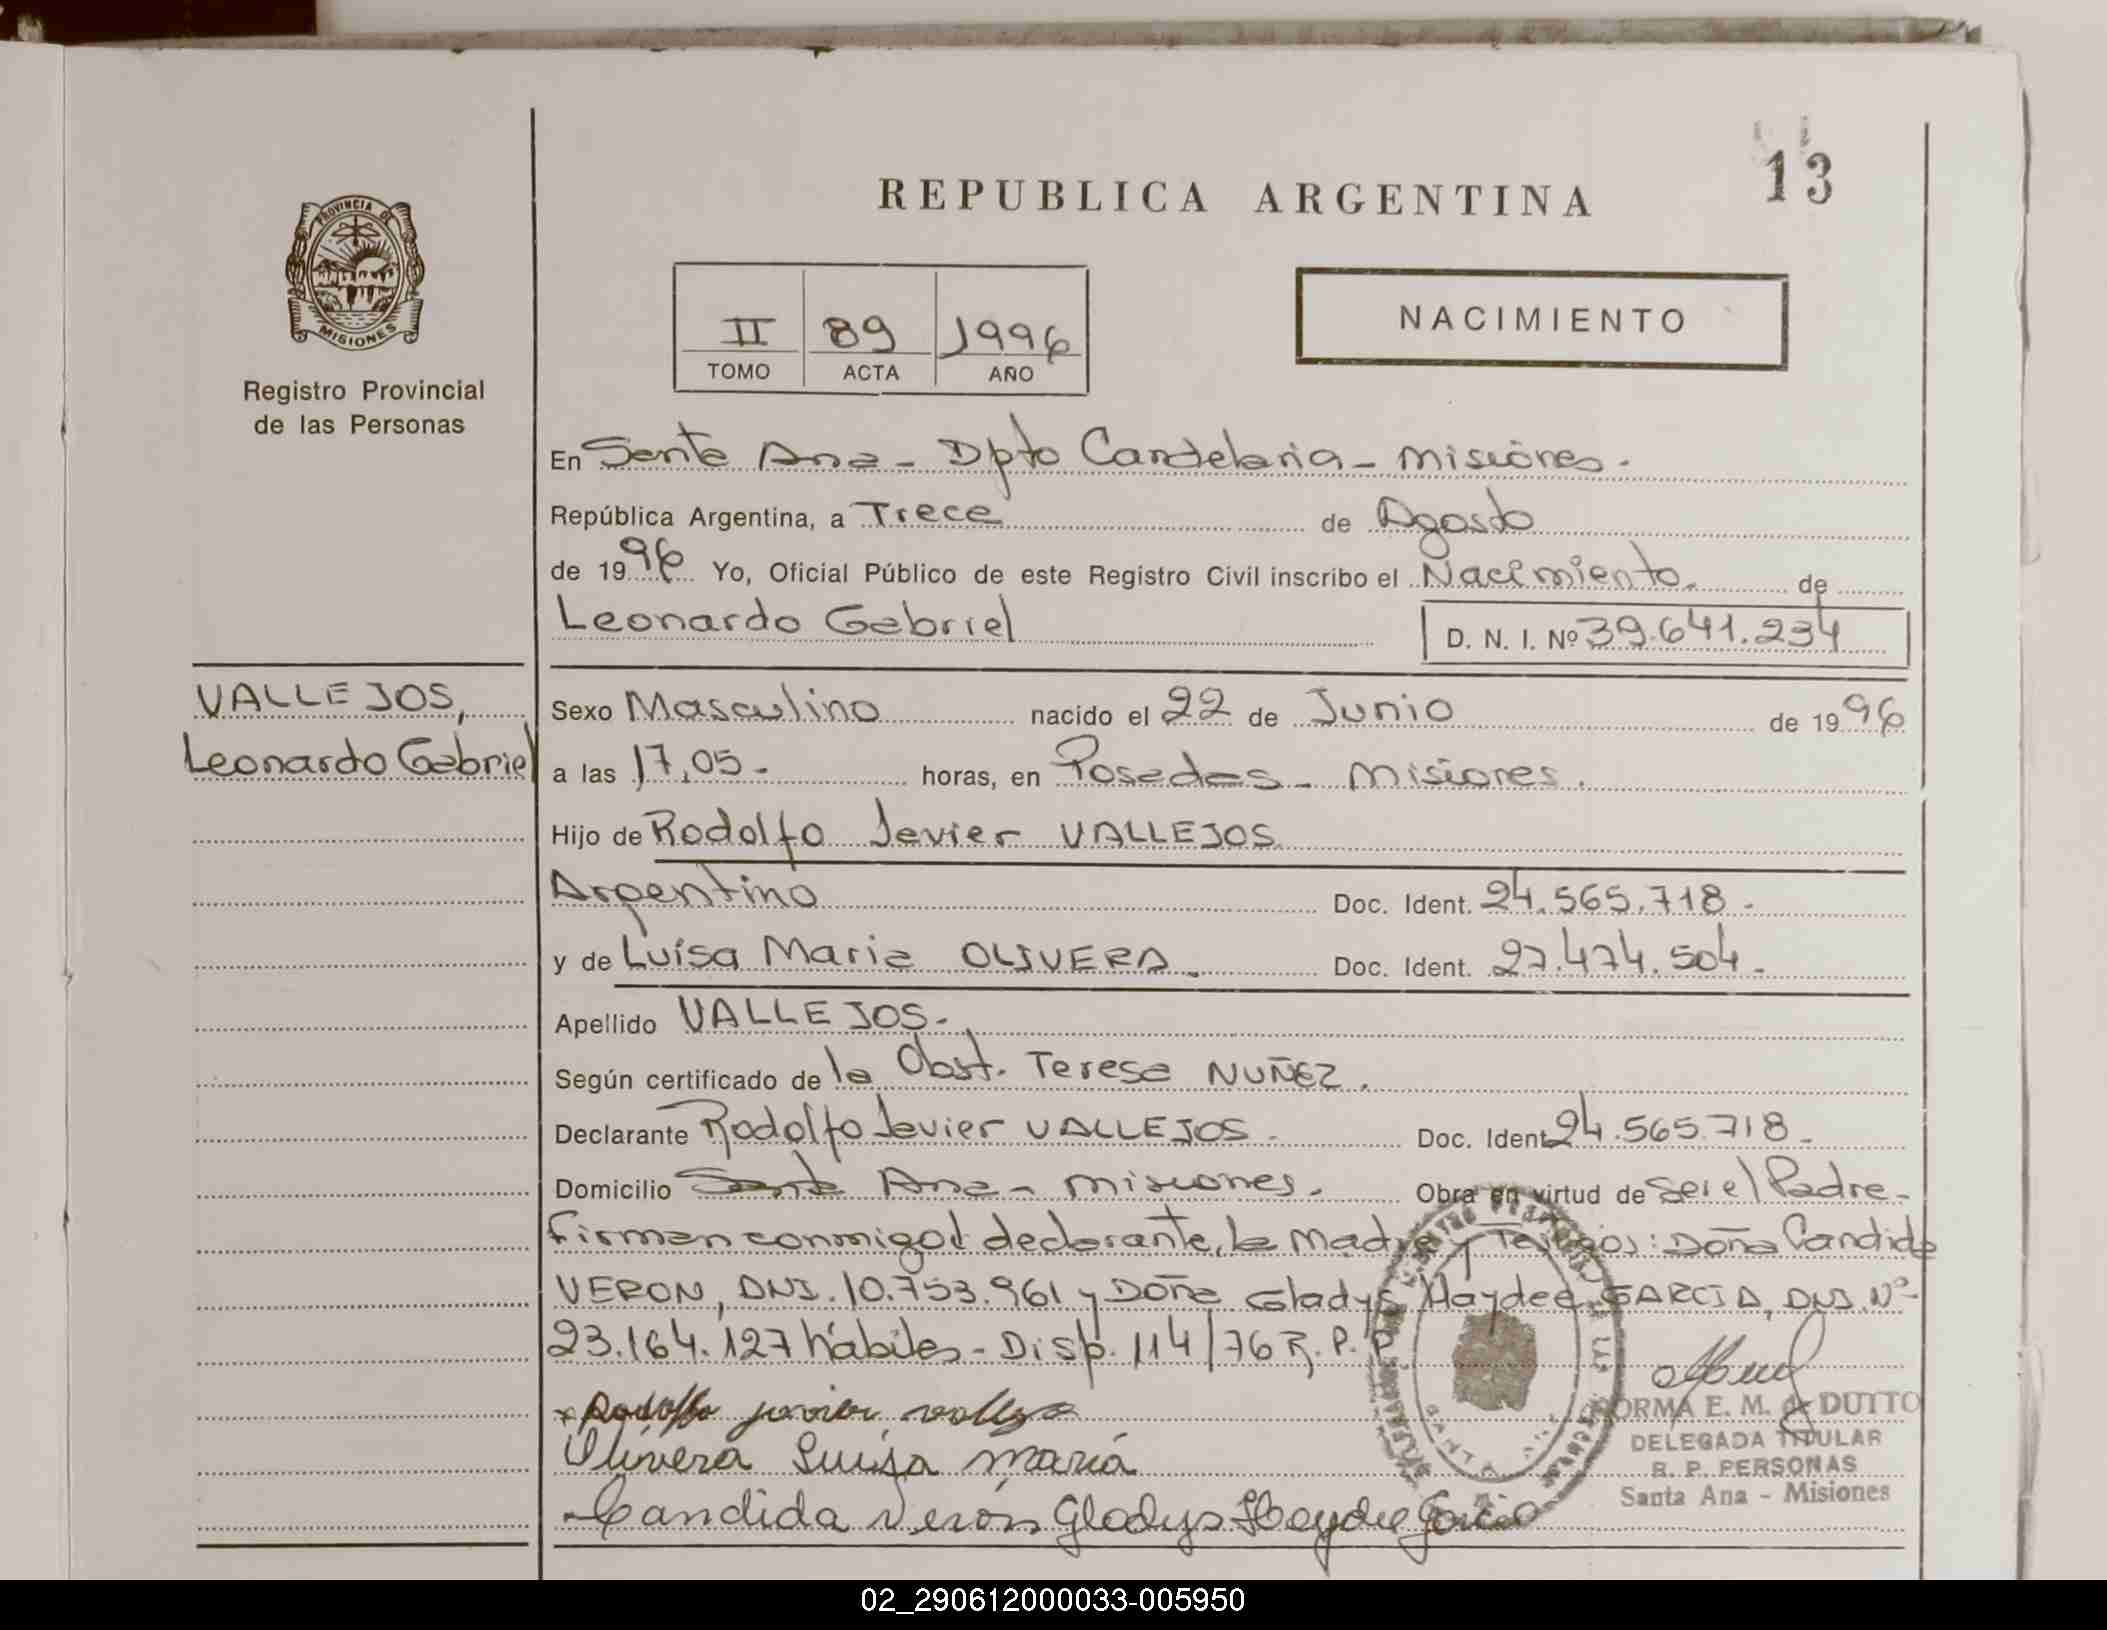 13
REPUBLICA ARGENTINA
PROVINCIA DE
MISIONES
Registro Provincial
de las Personas
II 89 1996
TOMO ACTA AÑO
NACIMIENTO
En Santa Ana - Dpto Candelaria - Misiones.
República Argentina, a Trece de Agosto
de 1996 Yo, Oficial Público de este Registro Civil inscribo el Nacimiento. de
Leonardo Gabriel D. N. I. Nº 39.641.234
VALLEJOS,
Leonardo Gabriel
Sexo Masculino nacido el 22 de Junio de 1996
a las 17,05- horas, en Posadas - Misiones.
Hijo de Rodolfo Javier VALLEJOS
Argentino Doc. Ident. 24.565.718-
y de Luísa Maria OLIVERA. Doc. Ident. 27.474.504-
Apellido VALLEJOS-
Según certificado de la Obst. Teresa NUÑEZ.
Declarante Rodolfo Javier VALLEJOS- Doc. Ident 24.565.718-
Domicilio Santa Ana - Misiones. Obra en virtud de ser el Padre-
Firman conmigo el declarante, la Madre y Testigos: Doña Candida
VERON, DNI. 10.753.961 y Doña Gladys Haydee GARCIA, DNI. Nº
23.164.127 hábiles - Disp. 114/76 R.P.P
Rodolfo javier vallejos
Olivera Luisa maría
Candida Verón Gladys Haydee Garcia
NORMA E. M. de DUTTO
DELEGADA TITULAR
R. P. PERSONAS
Santa Ana - Misiones
02_290612000033-005950